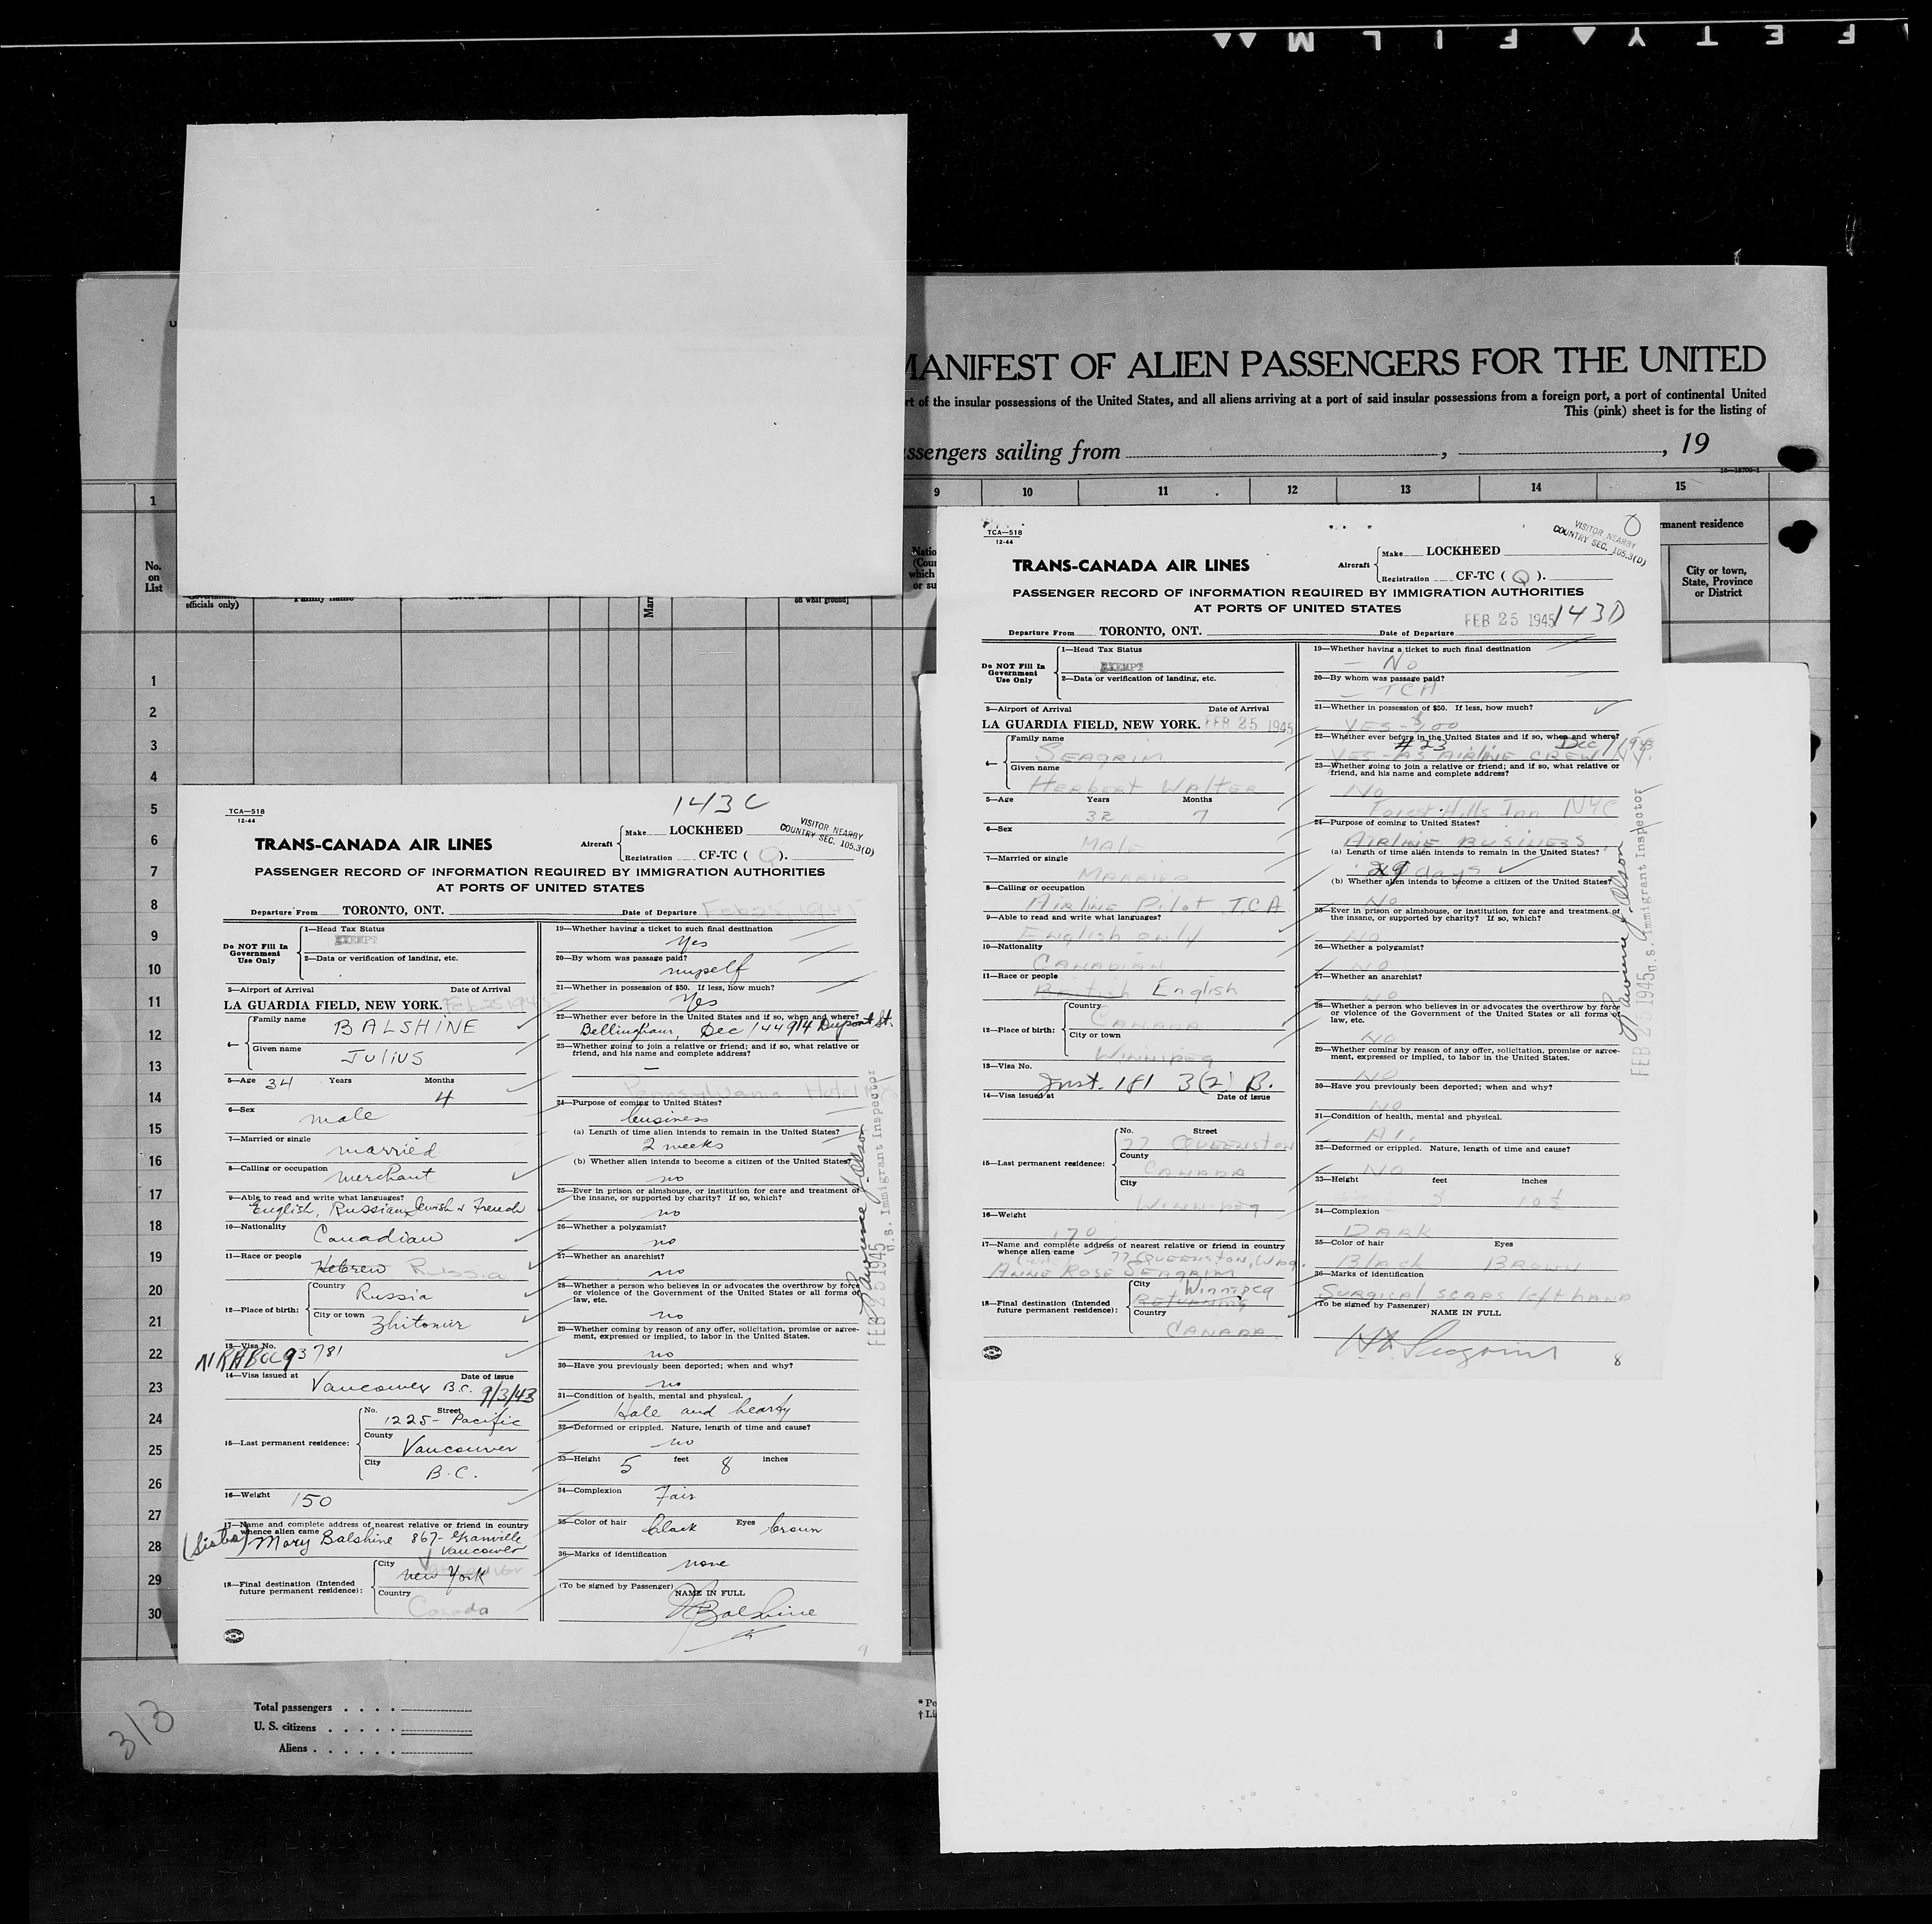 FETY FILM
MANIFEST OF ALIEN PASSENGERS FOR THE UNITED
rt of the insular possessions of the United States, and all aliens arriving at a port of said insular possessions from a foreign port, a port of continental United
This (pink) sheet is for the listing of
ssengers sailing from , , 19
1 9 10 11 12 13 14 15
No. on List
officials only)
Family name
on what ground]
manent residence
City or town, State, Province or District
1
2
3
4
5
6
7
8
9
10
11
12
13
14
15
16
17
18
19
20
21
22
23
24
25
26
27
28
29
30
Total passengers . . . .
U. S. citizens . . . . .
Aliens . . . . . .
313
143C
TCA—518
12-44
TRANS-CANADA AIR LINES
Aircraft Make LOCKHEED
Registration CF-TC ( Q ).
VISITOR NEARBY
COUNTRY SEC. 105.3(D)
PASSENGER RECORD OF INFORMATION REQUIRED BY IMMIGRATION AUTHORITIES
AT PORTS OF UNITED STATES
Departure From TORONTO, ONT. Date of Departure Feb 25, 1945
Do NOT Fill In Government Use Only
1—Head Tax Status
EXEMPT
2—Data or verification of landing, etc.
3—Airport of Arrival Date of Arrival
LA GUARDIA FIELD, NEW YORK. Feb 25 1945
4— Family name BALSHINE
Given name JULIUS
5—Age 34 Years Months 4
6—Sex male
7—Married or single married
8—Calling or occupation merchant
9—Able to read and write what languages?
English, Russian, Jewish & French
10—Nationality Canadian
11—Race or people Hebrew Russia
12—Place of birth: Country Russia
City or town Zhitomir
13—Visa No.
93781
14—Visa issued at Vancouver B.C. Date of issue 9/3/43
15—Last permanent residence: No. 1225- Street Pacific
County Vancouver
City B.C.
16—Weight 150
17—Name and complete address of nearest relative or friend in country
whence alien came
(Sister) Mary Balshine 867- Granville
Vancouver
18—Final destination (Intended future permanent residence): City New York
Country Canada
19—Whether having a ticket to such final destination
Yes
20—By whom was passage paid?
myself
21—Whether in possession of $50. If less, how much?
Yes
22—Whether ever before in the United States and if so, when and where?
Bellingham, Dec /44 914 Dupont St.
23—Whether going to join a relative or friend; and if so, what relative or
friend, and his name and complete address?
—
Pennsylvania Hotel
24—Purpose of coming to United States?
business
(a) Length of time alien intends to remain in the United States?
2 weeks
(b) Whether alien intends to become a citizen of the United States?
no
25—Ever in prison or almshouse, or institution for care and treatment of
the insane, or supported by charity? If so, which?
no
26—Whether a polygamist?
no
27—Whether an anarchist?
no
28—Whether a person who believes in or advocates the overthrow by force
or violence of the Government of the United States or all forms of
law, etc.
no
29—Whether coming by reason of any offer, solicitation, promise or agree-
ment, expressed or implied, to labor in the United States.
no
30—Have you previously been deported; when and why?
no
31—Condition of health, mental and physical.
Hale and hearty
32—Deformed or crippled. Nature, length of time and cause?
no
33—Height 5 feet 8 inches
34—Complexion Fair
35—Color of hair black Eyes brown
36—Marks of identification
none
(To be signed by Passenger)
NAME IN FULL
J Balshine
9
FEB 25 1945 U.S. Immigrant Inspector
TCA—518
12-44
TRANS-CANADA AIR LINES
Aircraft Make LOCKHEED
Registration CF-TC ( Q ).
VISITOR NEARBY
COUNTRY SEC. 105.3(D)
PASSENGER RECORD OF INFORMATION REQUIRED BY IMMIGRATION AUTHORITIES
AT PORTS OF UNITED STATES
143D
Departure From TORONTO, ONT. Date of Departure FEB 25 1945
Do NOT Fill In Government Use Only
1—Head Tax Status
EXEMPT
2—Data or verification of landing, etc.
3—Airport of Arrival Date of Arrival
LA GUARDIA FIELD, NEW YORK. FEB 25 1945
4— Family name SEAGRIM
Given name HERBERT WALTER
5—Age Years 32 Months 7
6—Sex MALE
7—Married or single MARRIED
8—Calling or occupation
AIRLINE PILOT TCA
9—Able to read and write what languages?
English only
10—Nationality
CANADIAN
11—Race or people
British English
12—Place of birth: Country CANADA
City or town WINNIPEG
13—Visa No.
Inst. 181 3(2) B.
14—Visa issued at Date of issue
15—Last permanent residence: No. 77 Street QUEENSTON
County CANADA
City WINNIPEG
16—Weight 170
17—Name and complete address of nearest relative or friend in country
whence alien came 77 QUEENSTON, WPG.
ANNE ROSE SEAGRIM
18—Final destination (Intended future permanent residence): City Winnipeg
RETURNING
Country CANADA
19—Whether having a ticket to such final destination
— No
20—By whom was passage paid?
— TCA
21—Whether in possession of $50. If less, how much?
YES - $100
22—Whether ever before in the United States and if so, when and where?
#23 Dec 1/1943
YES - AS AIRLINE CREW N.Y.
23—Whether going to join a relative or friend; and if so, what relative or
friend, and his name and complete address?
No
Forest Hills Inn NYC
24—Purpose of coming to United States?
AIRLINE BUSINESS
(a) Length of time alien intends to remain in the United States?
29 days
(b) Whether alien intends to become a citizen of the United States?
No
25—Ever in prison or almshouse, or institution for care and treatment of
the insane, or supported by charity? If so, which?
NO
26—Whether a polygamist?
NO
27—Whether an anarchist?
NO
28—Whether a person who believes in or advocates the overthrow by force
or violence of the Government of the United States or all forms of
law, etc.
NO
29—Whether coming by reason of any offer, solicitation, promise or agree-
ment, expressed or implied, to labor in the United States.
NO
30—Have you previously been deported; when and why?
NO
31—Condition of health, mental and physical.
A1.
32—Deformed or crippled. Nature, length of time and cause?
NO
33—Height 5 feet 10 ½ inches
34—Complexion
DARK
35—Color of hair Black Eyes BROWN
36—Marks of identification
SURGICAL SCARS left hand
(To be signed by Passenger)
NAME IN FULL
H W Seagrim
8
FEB 25 1945 U.S. Immigrant Inspector